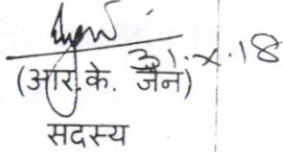 31.x.18
(आर.के. जैन)
सदस्य